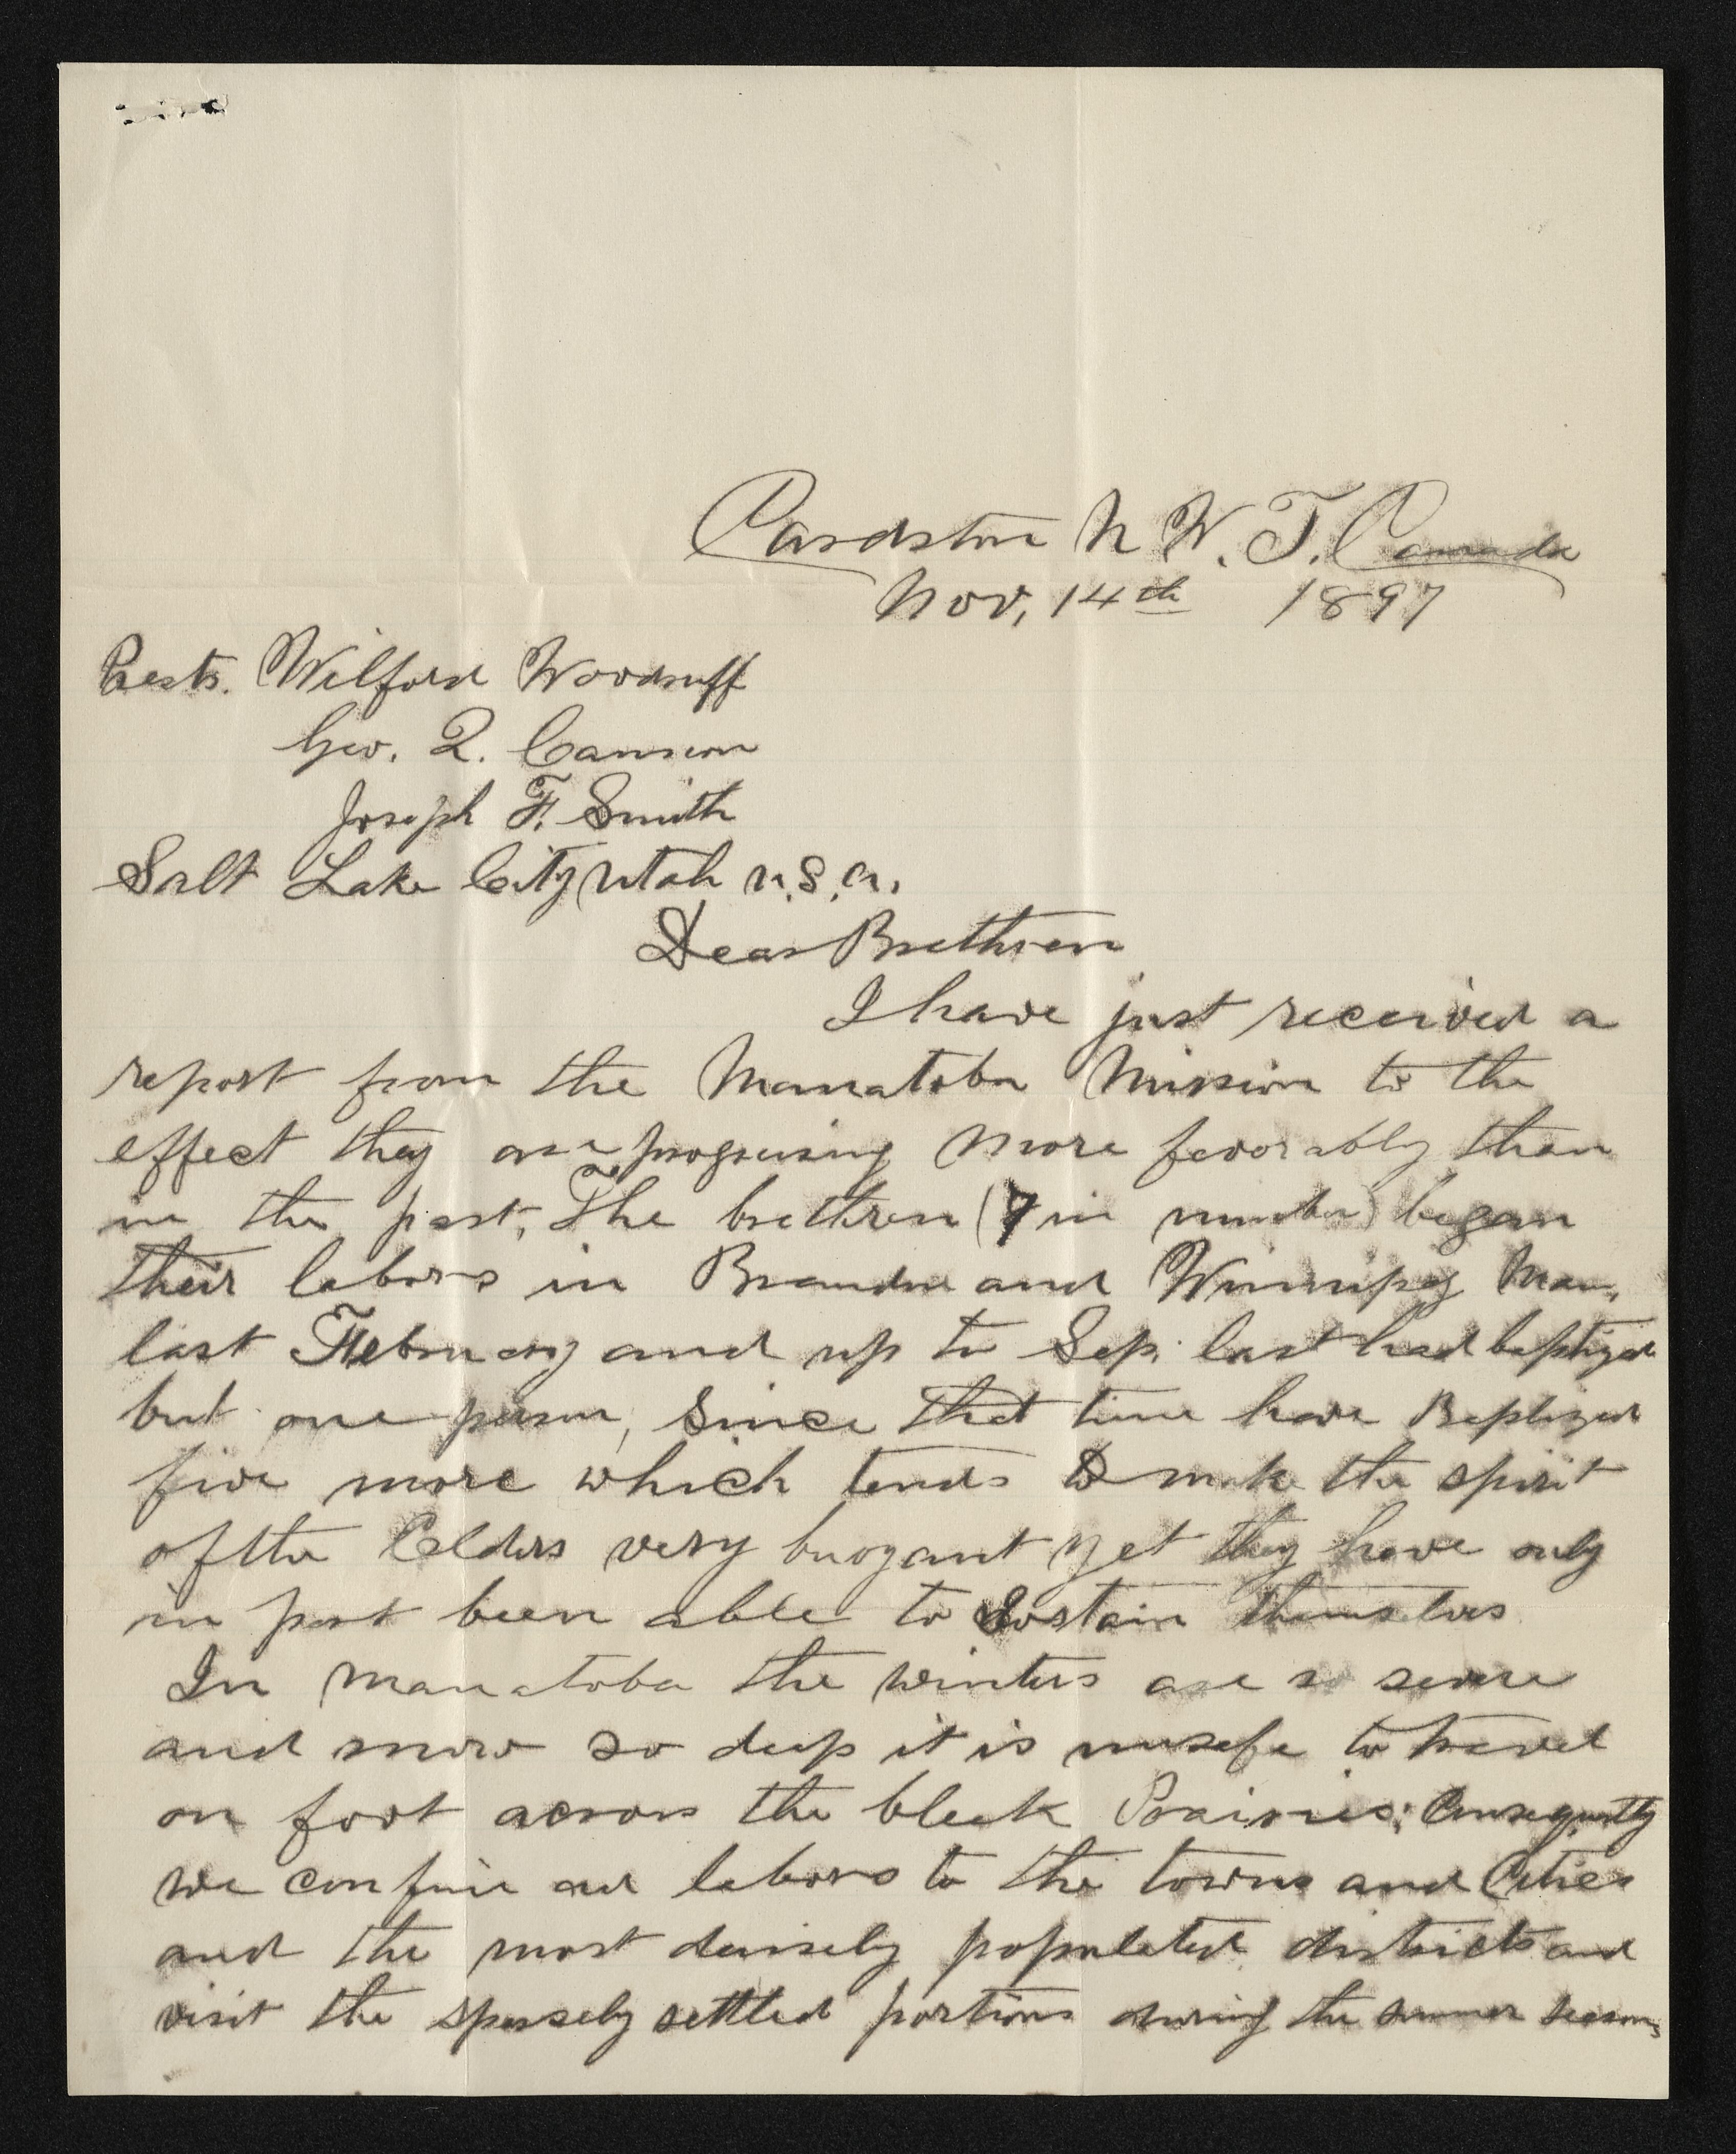 Cardston N. W. T. Canada
Nov, 14th 1897
Prests. Wilford Woodruff
Geo. Q. Cannon
Joseph F. Smith
Salt Lake City Utah U.S.A.
Dear Brethren
I have just received a
report from the Manatoba Mission to the
effect they are progressing more favorably than
in the past, The brethren (7 in number) began
their labors in Brandon and Winnipeg Man.
last February and up to Sep. last had baptized
but one person, Since that time have Baptized
five more which tends to make the spirit
of the Elders very buoyant yet they have only
in part been able to Sostain themselves
In Manatoba the winters are so severe
and snow so deep it is unsafe to travel
on foot across the bleek Prairies; Consequently
we confine our labors to the towns and Cities
and the most densely populated districts and
visit the sparsely settled portions during the summer season,